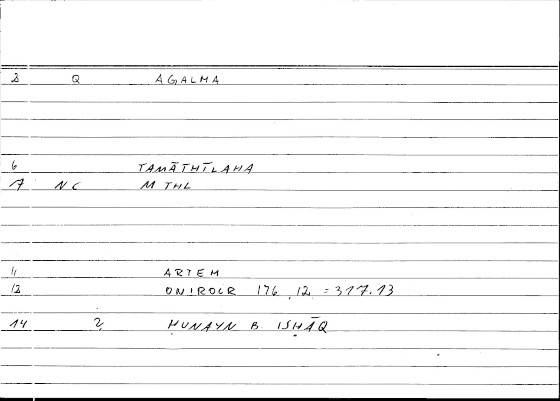 3 Q AGALMA
6 TAMĀTHĪLAHA
7 NC MTHL
11 ARTEM
12 ONIROCR 176,12 = 317.13
14 2 ḤUNAYN B. ISḤĀQ